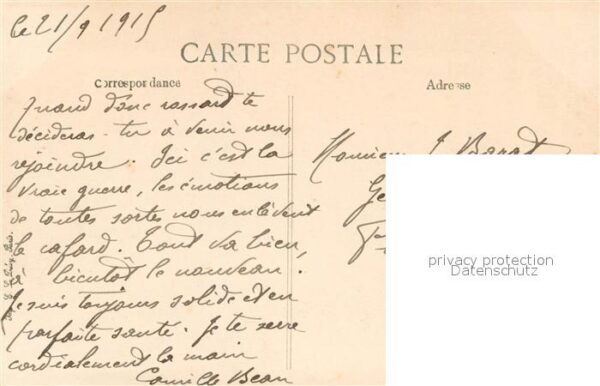 le 21/9 1915
CARTE POSTALE
Correspondance
Adresse
Quand donc te
décideras-tu à venir nous
rejoindre. Ici c'est la
vraie guerre, les émotions
de toutes sortes nous enlèvent
le cafard. Tout va bien,
à bientôt le nouveau.
Je suis toujours solide et en
parfaite santé. Je te serre
cordialement la main
Camille
Monsieur J.
privacy protection
Datenschutz